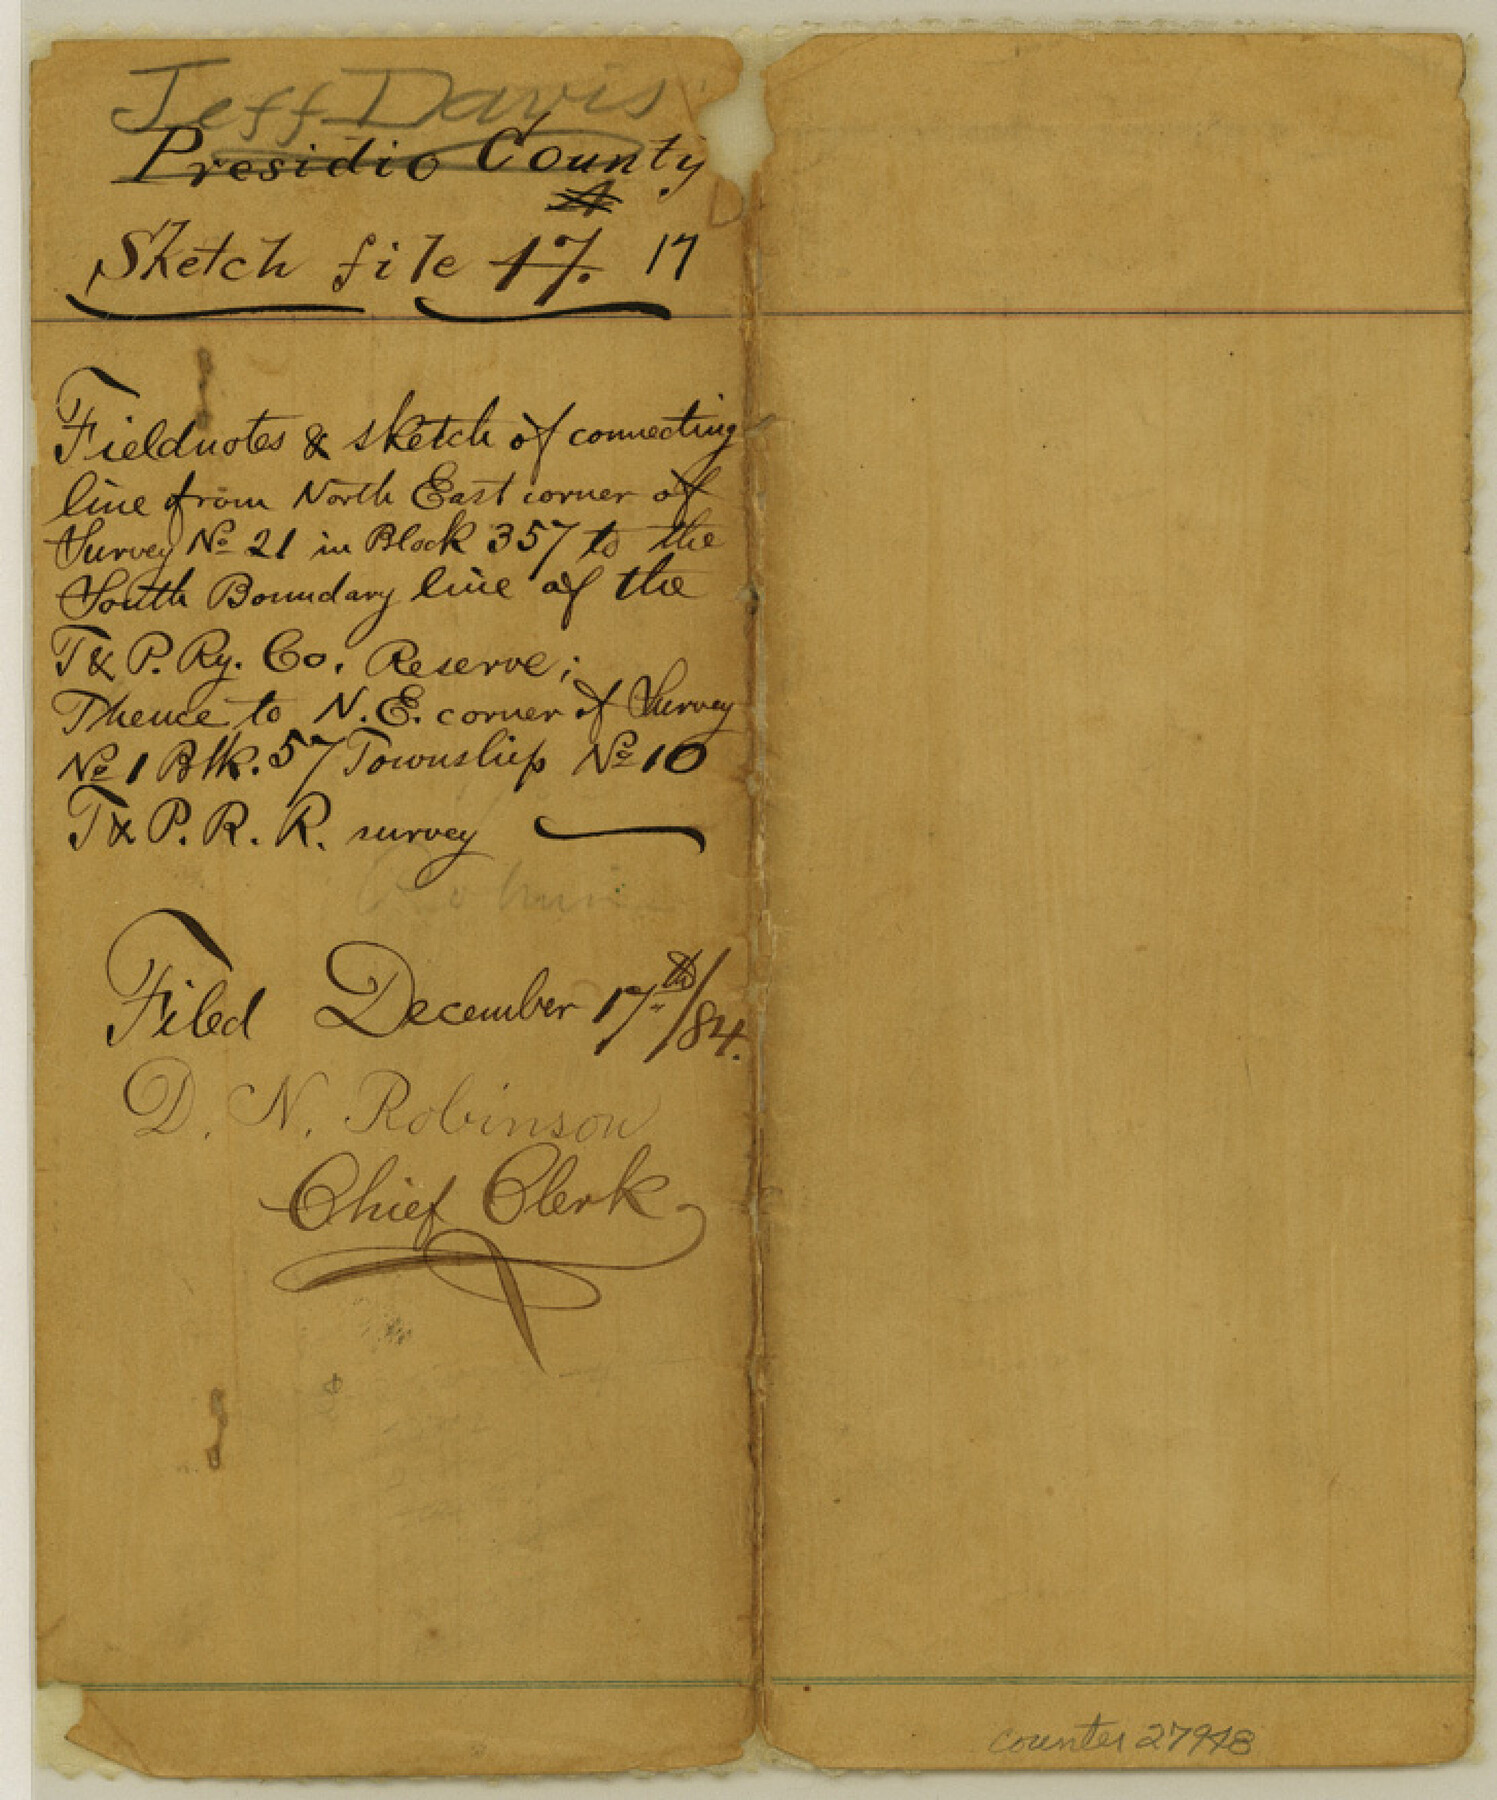 Jeff Davis
Presidio County
Sketch file 17. 17
Fieldnotes & sketch of connecting
line from North East corner of
Survey No 21 in Block 357 to the
South Boundary line of the
T & P. Ry. Co. Reserve;
Thence to N.E. corner of Survey
No 1 Blk. 57 Township No 10
T & P. R. R. survey
Filed December 17th/84.
D. N. Robinson
Chief Clerk
counter 27948